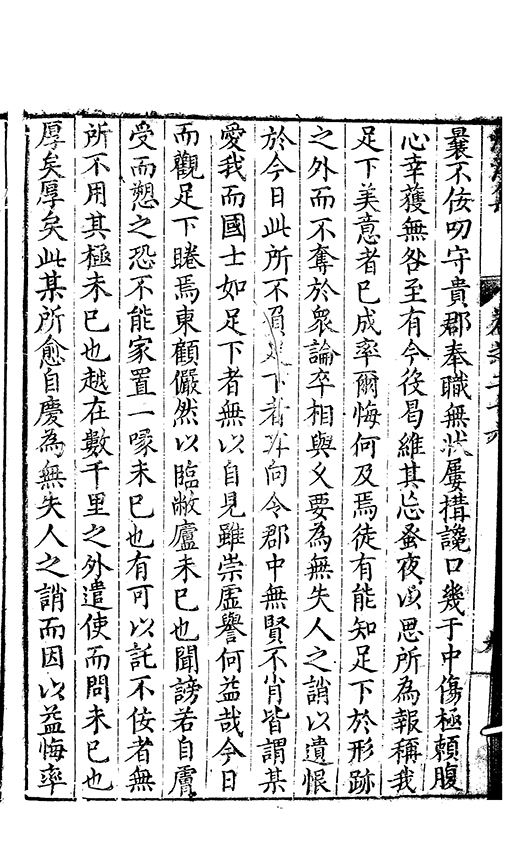 曩不佞叨守貴郡奉職無狀屢搆讒口幾于中傷極賴腹
心幸獲無咎至有今役曷維其忘蚤夜以思所為報稱我
足下美意者已成率爾悔何及焉徒有能知足下於形跡
之外而不奪於衆論卒相與久要為無失人之誚以遺恨
於今日此所不負足下者耳向令郡中無賢不肖皆謂某
愛我而國士如足下者無以自見雖崇虛譽何益哉今日
而觀足下睠焉東顧儼然以臨敝廬未已也聞謗若自膚
受而愬之恐不能家置一喙未已也有可以託不佞者無
所不用其極未已也越在數千里之外遣使而問未已也
厚矣厚矣此某所愈自慶為無失人之誚而因以益悔率